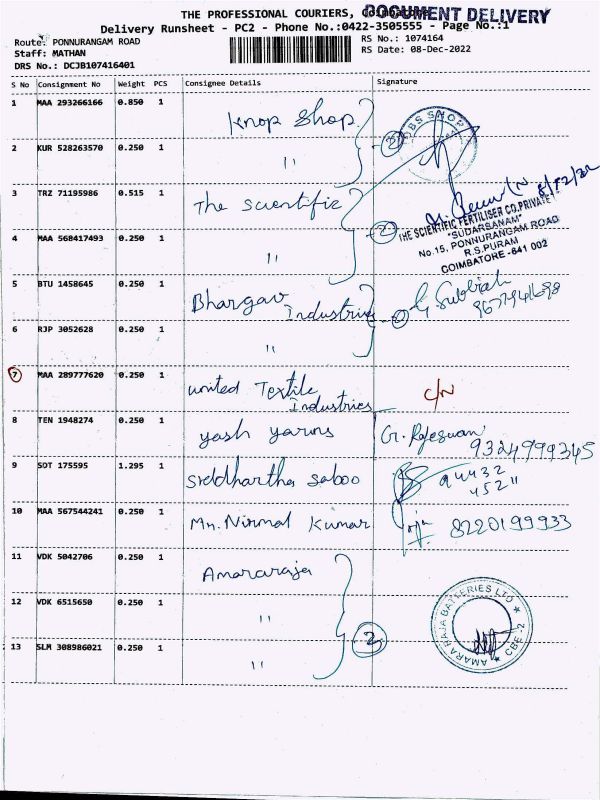 THE PROFESSIONAL COURIERS, Coimbatore
DOCUMENT DELIVERY
Delivery Runsheet - PC2 - Phone No.:0422-3505555 - Page No.:1
Route: PONNURANGAM ROAD RS No.: 1074164
Staff: MATHAN RS Date: 08-Dec-2022
DRS No.: DCJB107416401
S No Consignment No Weight PCS Consignee Details Signature
1 MAA 293266166 0.850 1 Knop Shop
2 KUR 528263570 0.250 1 " 2
3 TRZ 71195986 0.515 1 The Scientific
8/12/22
THE SCIENTIFIC FERTILISER CO.PRIVATE
"SUDARSANAM"
No.15, PONNURANGAM ROAD
R.S.PURAM
COIMBATORE -641 002
4 MAA 568417493 0.250 1 " 2
5 BTU 1458645 0.250 1 Bhargav Industries G. Subbiah
6 RJP 3052628 0.250 1 "
7 MAA 289777620 0.250 1 United Textile Industries C/N
8 TEN 1948274 0.250 1 yash yarns G. Rajeswari
9324999345
9 SOT 175595 1.295 1 Siddhartha Saboo 94432
45211
10 MAA 567544241 0.250 1 Mr. Nirmal Kumar 8220199933
11 VDK 5042706 0.250 1 Amararaja
12 VDK 6515650 0.250 1 "
13 SLM 308986021 0.250 1 " 2
AMARA RAJA BATTERIES LTD
CBE-2